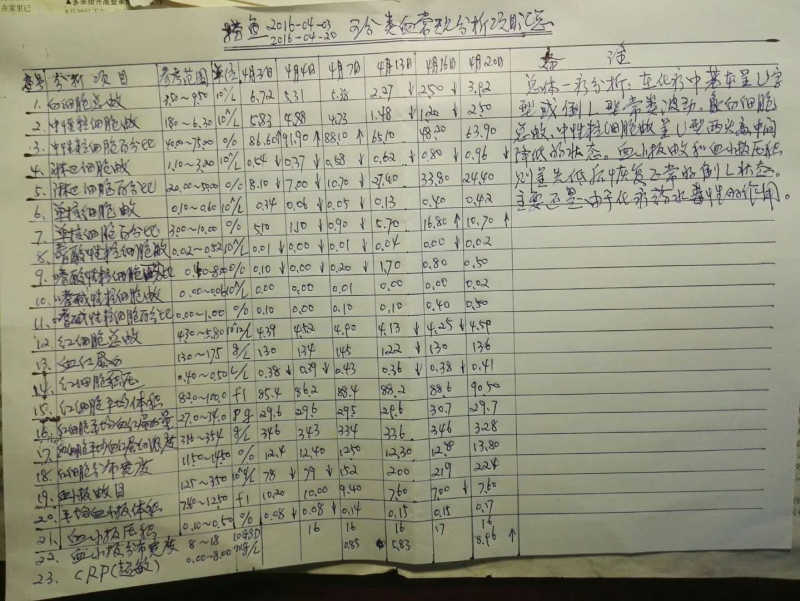 2016-04-03
2016-04-20 五分类血常规分析项汇总
序号 分析项目 参考范围 单位 4月3日 4月4日 4月7日 4月13日 4月16日 4月20日 备注
1. 白细胞总数 3.50~9.50 10^9/L 6.72 5.31 5.38 2.27 ↓ 2.50 ↓ 3.92
2. 中性粒细胞数 1.80~6.30 10^9/L 5.83 4.88 4.73 1.48 ↓ 1.20 ↓ 2.50
3. 中性粒细胞百分比 40.0~75.00 % 86.60↑ 91.90↑ 88.10↑ 65.10 48.20 63.90
4. 淋巴细胞数 1.10~3.20 10^9/L 0.54 ↓ 0.37 ↓ 0.58 ↓ 0.62 ↓ 0.80 ↓ 0.96 ↓
5. 淋巴细胞百分比 20.00~50.00 % 8.10 ↓ 7.00 ↓ 10.70 ↓ 27.40 33.80 24.40
6. 单核细胞数 0.10~0.60 10^9/L 0.34 0.06 ↓ 0.05 ↓ 0.13 0.40 0.42
7. 单核细胞百分比 3.00~10.00 % 5.10 1.10 ↓ 0.90 ↓ 5.70 16.80 ↑ 10.70 ↑
8. 嗜酸性粒细胞数 0.02~0.52 10^9/L 0.01 ↓ 0.00 ↓ 0.01 ↓ 0.04 0.00 ↓ 0.02
9. 嗜酸性粒细胞百分比 0.40~8.00 % 0.10 ↓ 0.00 ↓ 0.20 ↓ 1.70 0.80 0.50
10. 嗜碱性粒细胞数 0.00~0.06 10^9/L 0.00 0.00 0.01 0.00 0.00 0.02
11. 嗜碱性粒细胞百分比 0.00~1.00 % 0.10 0.00 0.10 0.10 0.40 0.50
12. 红细胞总数 4.30~5.80 10^12/L 4.39 4.52 4.90 4.13 ↓ 4.25 ↓ 4.59
13. 血红蛋白 130~175 g/L 130 134 145 122 ↓ 130 136
14. 红细胞压积 0.40~0.50 L/L 0.38 ↓ 0.39 ↓ 0.43 0.36 ↓ 0.38 ↓ 0.41
15. 红细胞平均体积 82.0~100.0 fl 85.4 86.2 88.4 88.2 88.6 90.50
16. 红细胞平均血红蛋白量 27.0~34.0 pg 29.6 29.6 29.5 29.6 30.7 29.7
17. 红细胞平均血红蛋白浓度 316~354 g/L 346 343 334 336 346 328
18. 红细胞分布宽度 11.50~14.50 % 12.4 12.40 12.50 12.30 12.40 13.80
19. 血小板数目 125~350 10^9/L 78 ↓ 79 ↓ 152 200 219 224
20. 平均血小板体积 7.40~12.50 fl 10.20 10.00 9.40 7.60 7.00 ↓ 7.60
21. 血小板压积 0.10~0.50 % 0.08 ↓ 0.08 ↓ 0.14 0.15 0.15 0.17
22. 血小板分布宽度 8~18 10GSD 16 16 16 17 16
23. CRP(超敏) 0.00~8.00 mg/L 0.85 5.83 8.96 ↑
总体一致分析,在化疗中基本呈U字
型或倒L型常态波动,即白细胞
总数、中性粒细胞数呈U型两头高中间
降低的状态。血小板数和血小板压积
则呈先低后恢复正常的倒L状态。
主要还是由于化疗药水毒性的作用。